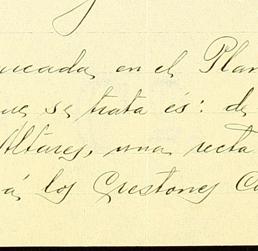 ucada en el Plan
ue se trata és: de
Altares, una recta
á los Crestones Co